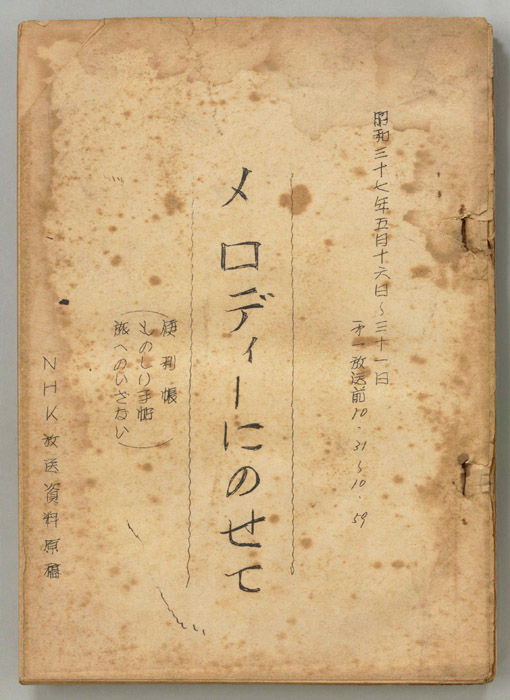 昭和三十七年五月十六日〜三十一日
第一放送前10.31〜10.59
メロディーにのせて
(便利帳
ものしり手帖
旅へのいざない)
NHK放送資料原稿